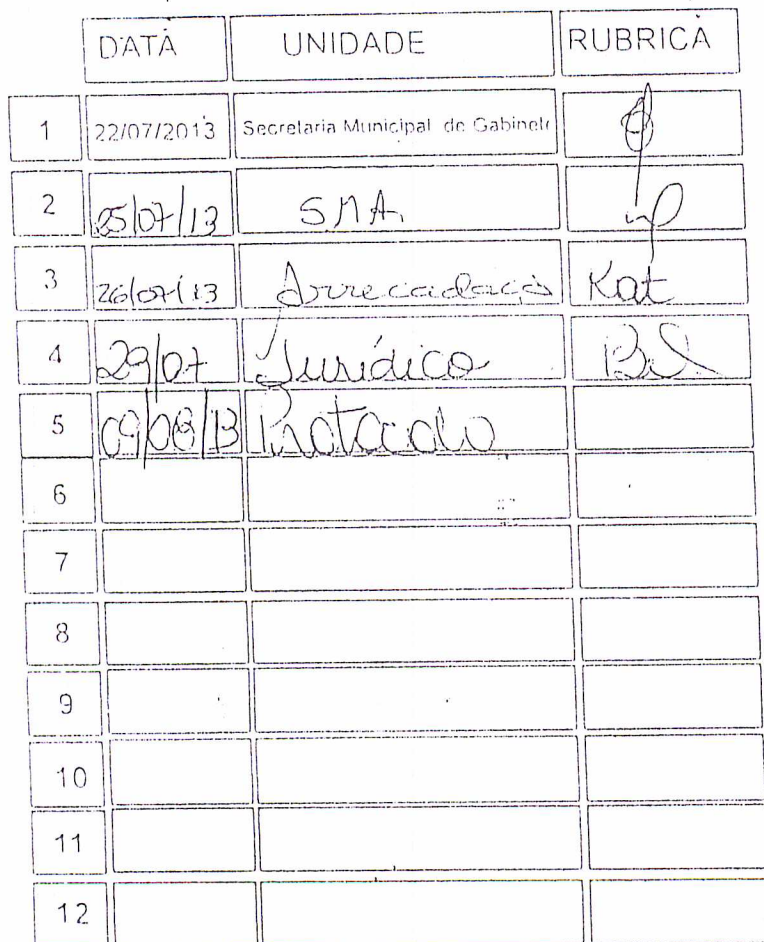 DATA UNIDADE RUBRICA
1 22/07/2013 Secretaria Municipal de Gabinete
2 25/07/13 SMA.
3 26/07/13 Arrecadação Kat
4 29/07 Jurídico
5 09/08/13 Protocolo
6
7
8
9
10
11
12